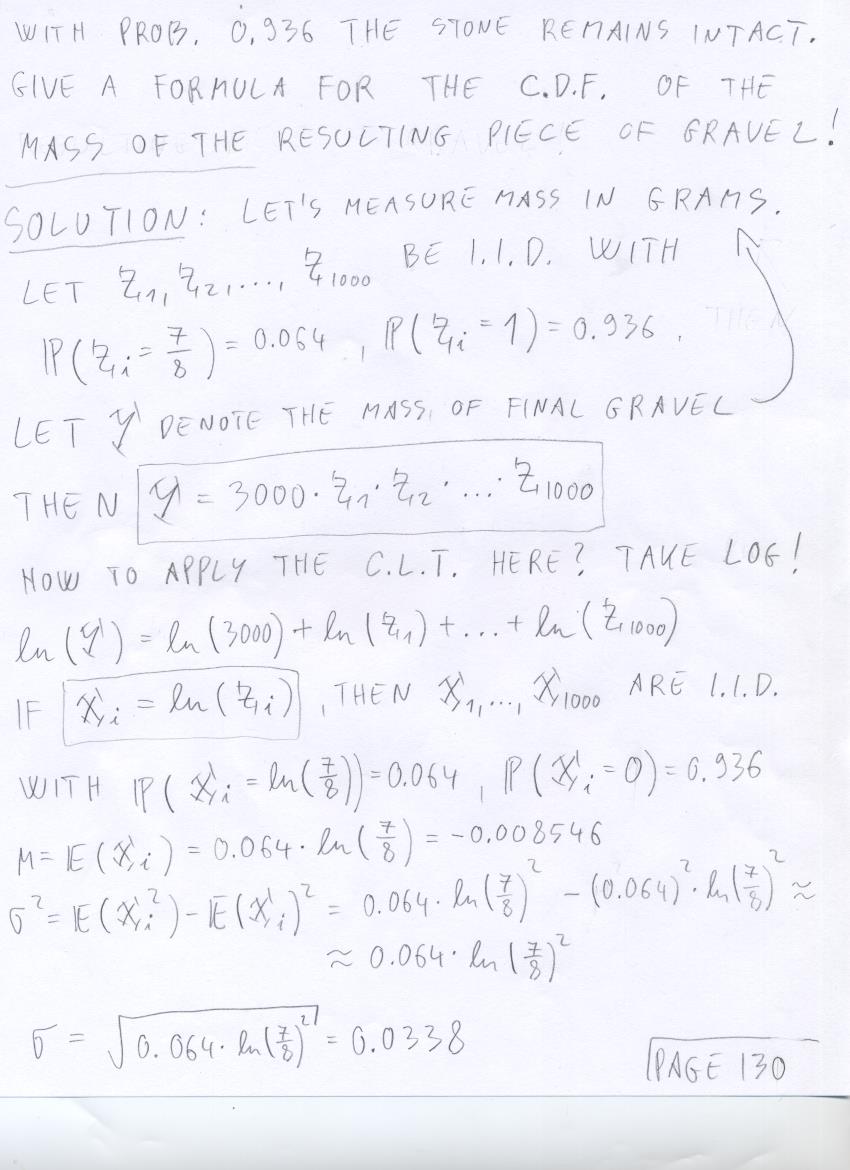 WITH PROB. 0.936 THE STONE REMAINS INTACT.
GIVE A FORMULA FOR THE C.D.F. OF THE
MASS OF THE RESULTING PIECE OF GRAVEL!
SOLUTION: LET'S MEASURE MASS IN GRAMS.
LET Z₁, Z₂, ..., Z₁₀₀₀ BE I.I.D. WITH
ℙ(Zᵢ = 7/8) = 0.064, ℙ(Zᵢ = 1) = 0.936.
LET Y DENOTE THE MASS OF FINAL GRAVEL
THEN Y = 3000 · Z₁ · Z₂ · ... · Z₁₀₀₀
HOW TO APPLY THE C.L.T. HERE? TAKE LOG!
ln(Y) = ln(3000) + ln(Z₁) + ... + ln(Z₁₀₀₀)
IF Xᵢ = ln(Zᵢ), THEN X₁, ..., X₁₀₀₀ ARE I.I.D.
WITH ℙ(Xᵢ = ln(7/8)) = 0.064, ℙ(Xᵢ = 0) = 0.936
μ = 𝔼(Xᵢ) = 0.064 · ln(7/8) = -0.008546
σ² = 𝔼(Xᵢ²) - 𝔼(Xᵢ)² = 0.064 · ln(7/8)² - (0.064)² · ln(7/8)² ≈
≈ 0.064 · ln(7/8)²
σ = √(0.064 · ln(7/8)²) = 0.0338
PAGE 130